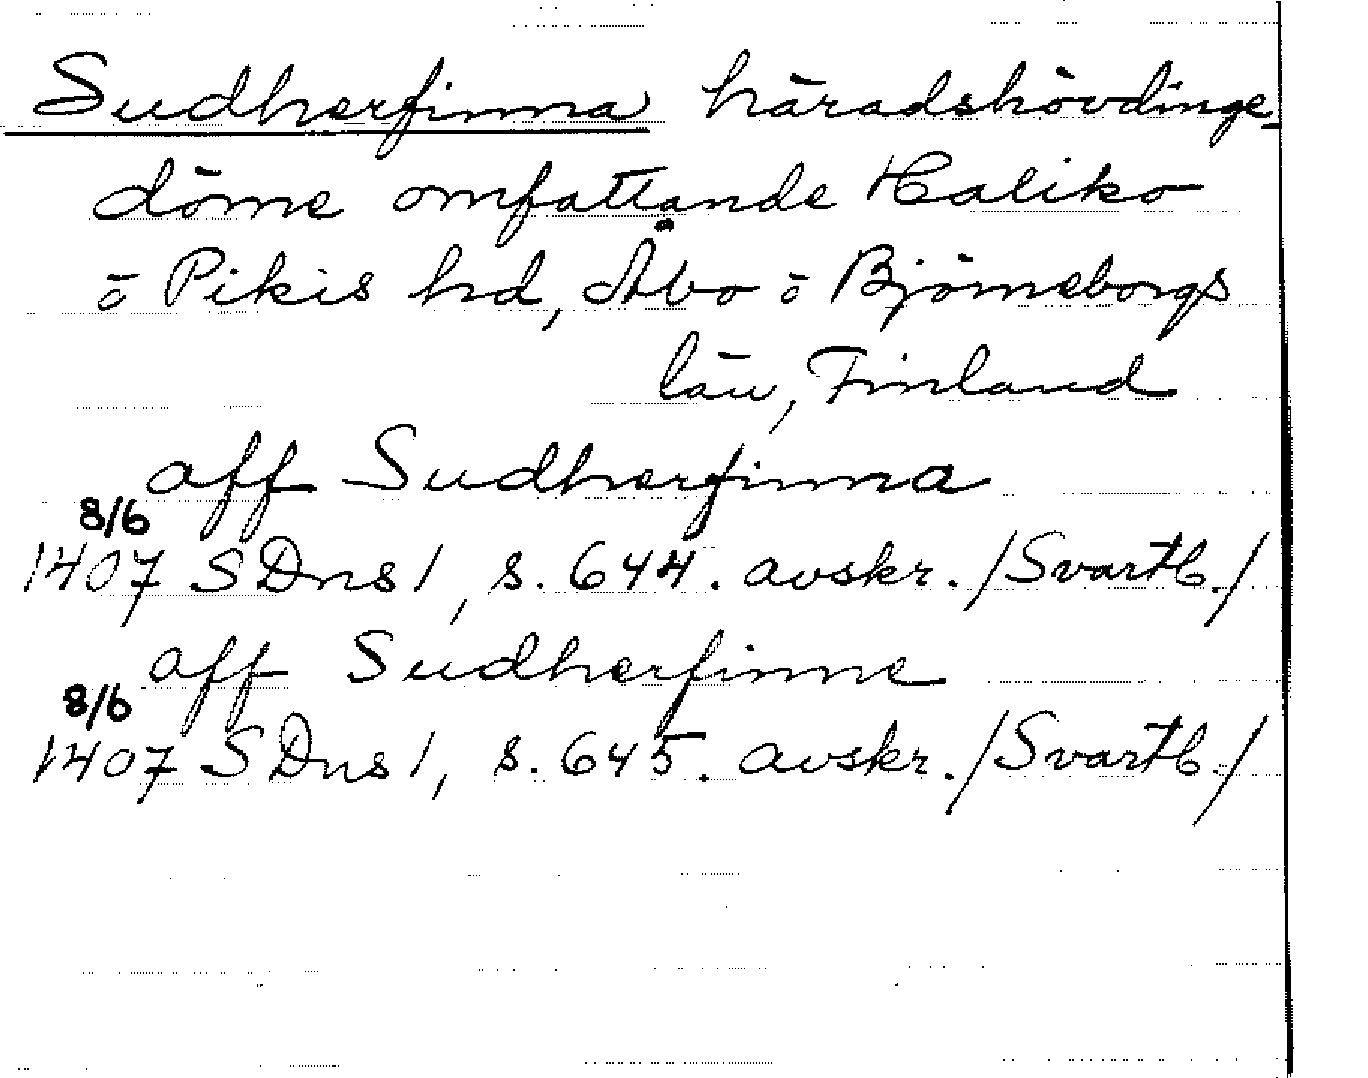 Sudherfinna häradshövdinge-
döme omfattande Haliko
o Pikis hd, Åbo o Björneborgs
län, Finland
aff Sudherfinna
8/6
1407 SDns 1, s. 644. avskr. /Svartb./
aff Sudherfinne
8/6
1407 SDns 1, s. 645. avskr. /Svartb./